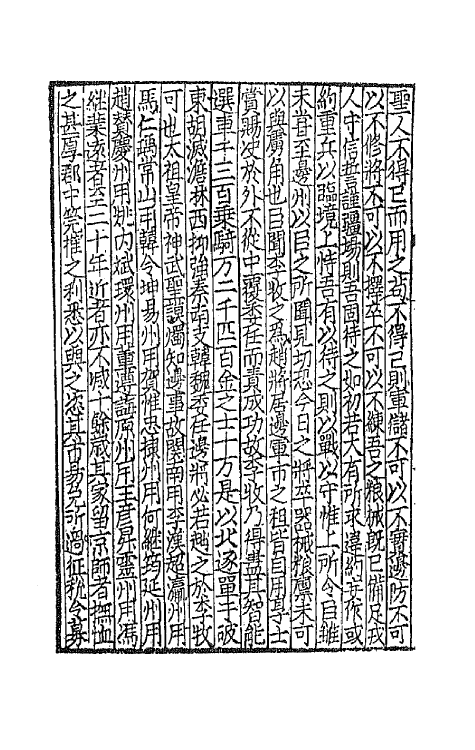 聖人不得已而用之苟不得已則軍儲不可以不實邊防不可
以不修將不可以不擇卒不可以不練吾之粮械既已備足戎
人守信誓謹疆場則吾固待之如初若大有所求違約妄作或
約重兵以臨境上恃吾有以待之則以戰以守惟上所令臣雖
未甞至邊州以臣之所聞見切恐今日之將卒器械粮廪未可
以與廣角也臣聞李牧之爲趙將居邊軍市之租皆自用享士
賞賜決於外不從中覆委任而責成功故李牧乃得盡其智能
選車千三百乗騎万二千匹百金之士十万是以北逐單于破
東胡滅澹林西抑強秦南支韓魏委任邊將必若趙之於李牧
可也太祖皇帝神武聖謨燭知邊事故関南用李漢超瀛州用
馬仁瑀常山用韓令坤易州用賀惟忠棣州用何繼筠延州用
趙賛慶州用姚内斌環州用董遵誨原州用王彦昇靈州用馮
継業遠者至二十年近者亦不减十餘歳其家留京師者撫恤
之甚厚郡中筦搉之利悉以與之恣其市易免所過征稅令募